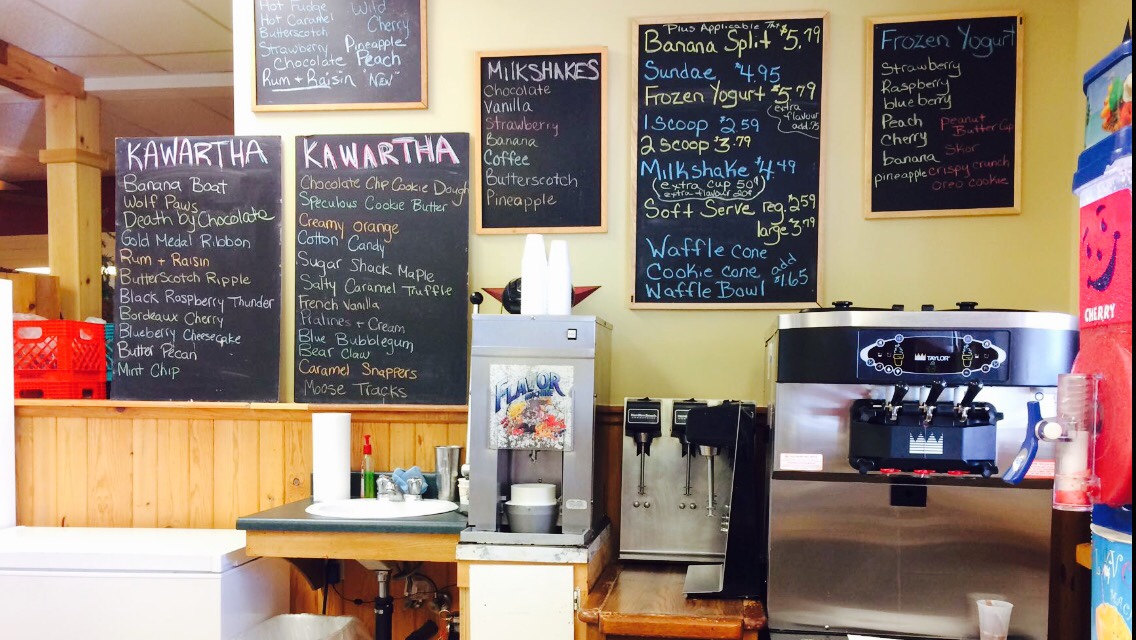 Hot Fudge
Hot Caramel
Butterscotch
Strawberry
Chocolate
Rum + Raisin
Wild
Cherry
Pineapple
Peach
"NEW"
KAWARTHA
Banana Boat
Wolf Paws
Death by Chocolate
Gold Medal Ribbon
Rum + Raisin
ButterScotch Ripple
Black Raspberry Thunder
Bordeaux Cherry
Blueberry Cheesecake
Butter Pecan
Mint Chip
KAWARTHA
Chocolate Chip Cookie Dough
Speculous Cookie Butter
Creamy orange
Cotton Candy
Sugar Shack Maple
Salty Caramel Truffle
French Vanilla
Pralines + Cream
Blue Bubblegum
Bear Claw
Caramel Snappers
Moose Tracks
MILKSHAKES
Chocolate
Vanilla
Strawberry
Banana
Coffee
Butterscotch
Pineapple
Plus Applicable
Banana Split $5.79
Sundae $4.95
Frozen Yogurt $5.79
extra
flavour
add .75
1 Scoop $2.59
2 scoop $3.79
Milkshake $4.49
(extra cup 50¢)
extra flavour 50¢
Soft Serve reg. $2.59
large $3.79
Waffle cone
Cookie cone add
Waffle Bowl $1.65
Frozen Yogurt
Strawberry
Raspberry
blueberry
Peach
Cherry
banana
pineapple
peanut
Butter Cup
Skor
crispy crunch
oreo cookie
FLAVOR
TAYLOR
CHERRY